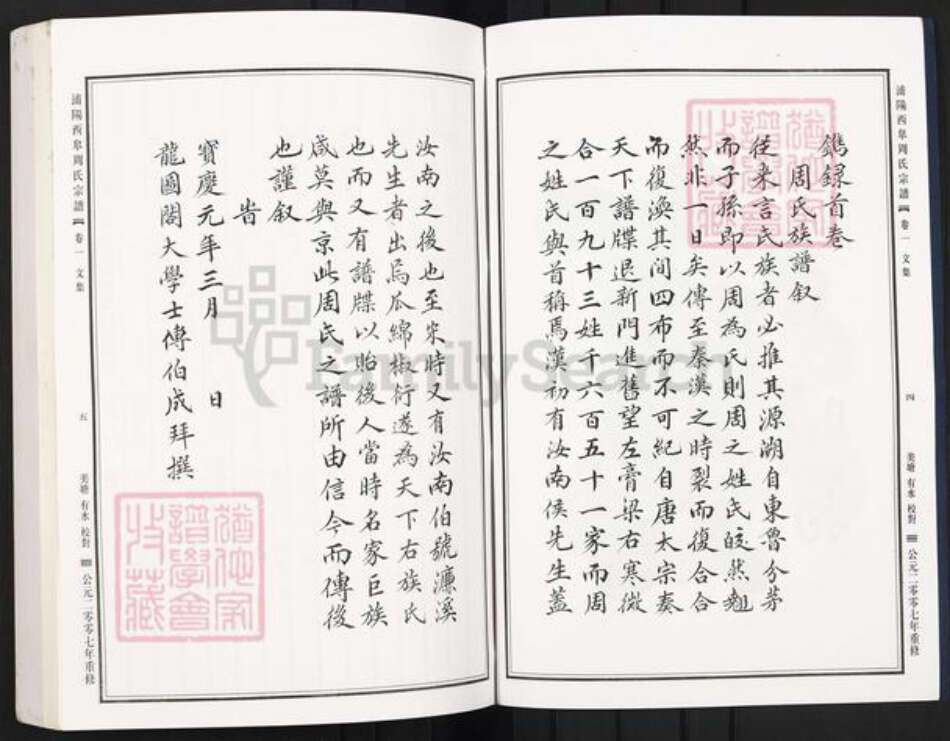 浦陽西皐周氏宗譜 卷一 文集
四
美塘 有水 校對 公元二零零七年重修
鐫錄首卷
周氏族譜叙
從来言氏族者必推其源溯自東魯分茅
而子孫即以周為氏則周之姓氏皎然
然非一日矣傳至秦漢之時裂而復合合
而復渙其間四布而不可紀自唐太宗奏
天下譜牒退新門進舊望左膏梁右寒微
合一百九十三姓千六百五十一家而周
之姓氏與首稱焉漢初有汝南侯先生蓋
汝南之後也至宋時又有汝南伯號濂溪
先生者出焉瓜綿椒衍遂為天下右族氏
也而又有譜牒以貽後人當時名家巨族
咸莫與京此周氏之譜所由信今而傳後
也謹叙
旹
寶慶元年三月 日
龍圖閣大學士傅伯成拜撰
浦陽西皐周氏宗譜 卷一 文集
五
美塘 有水 校對 公元二零零七年重修
FamilySearch